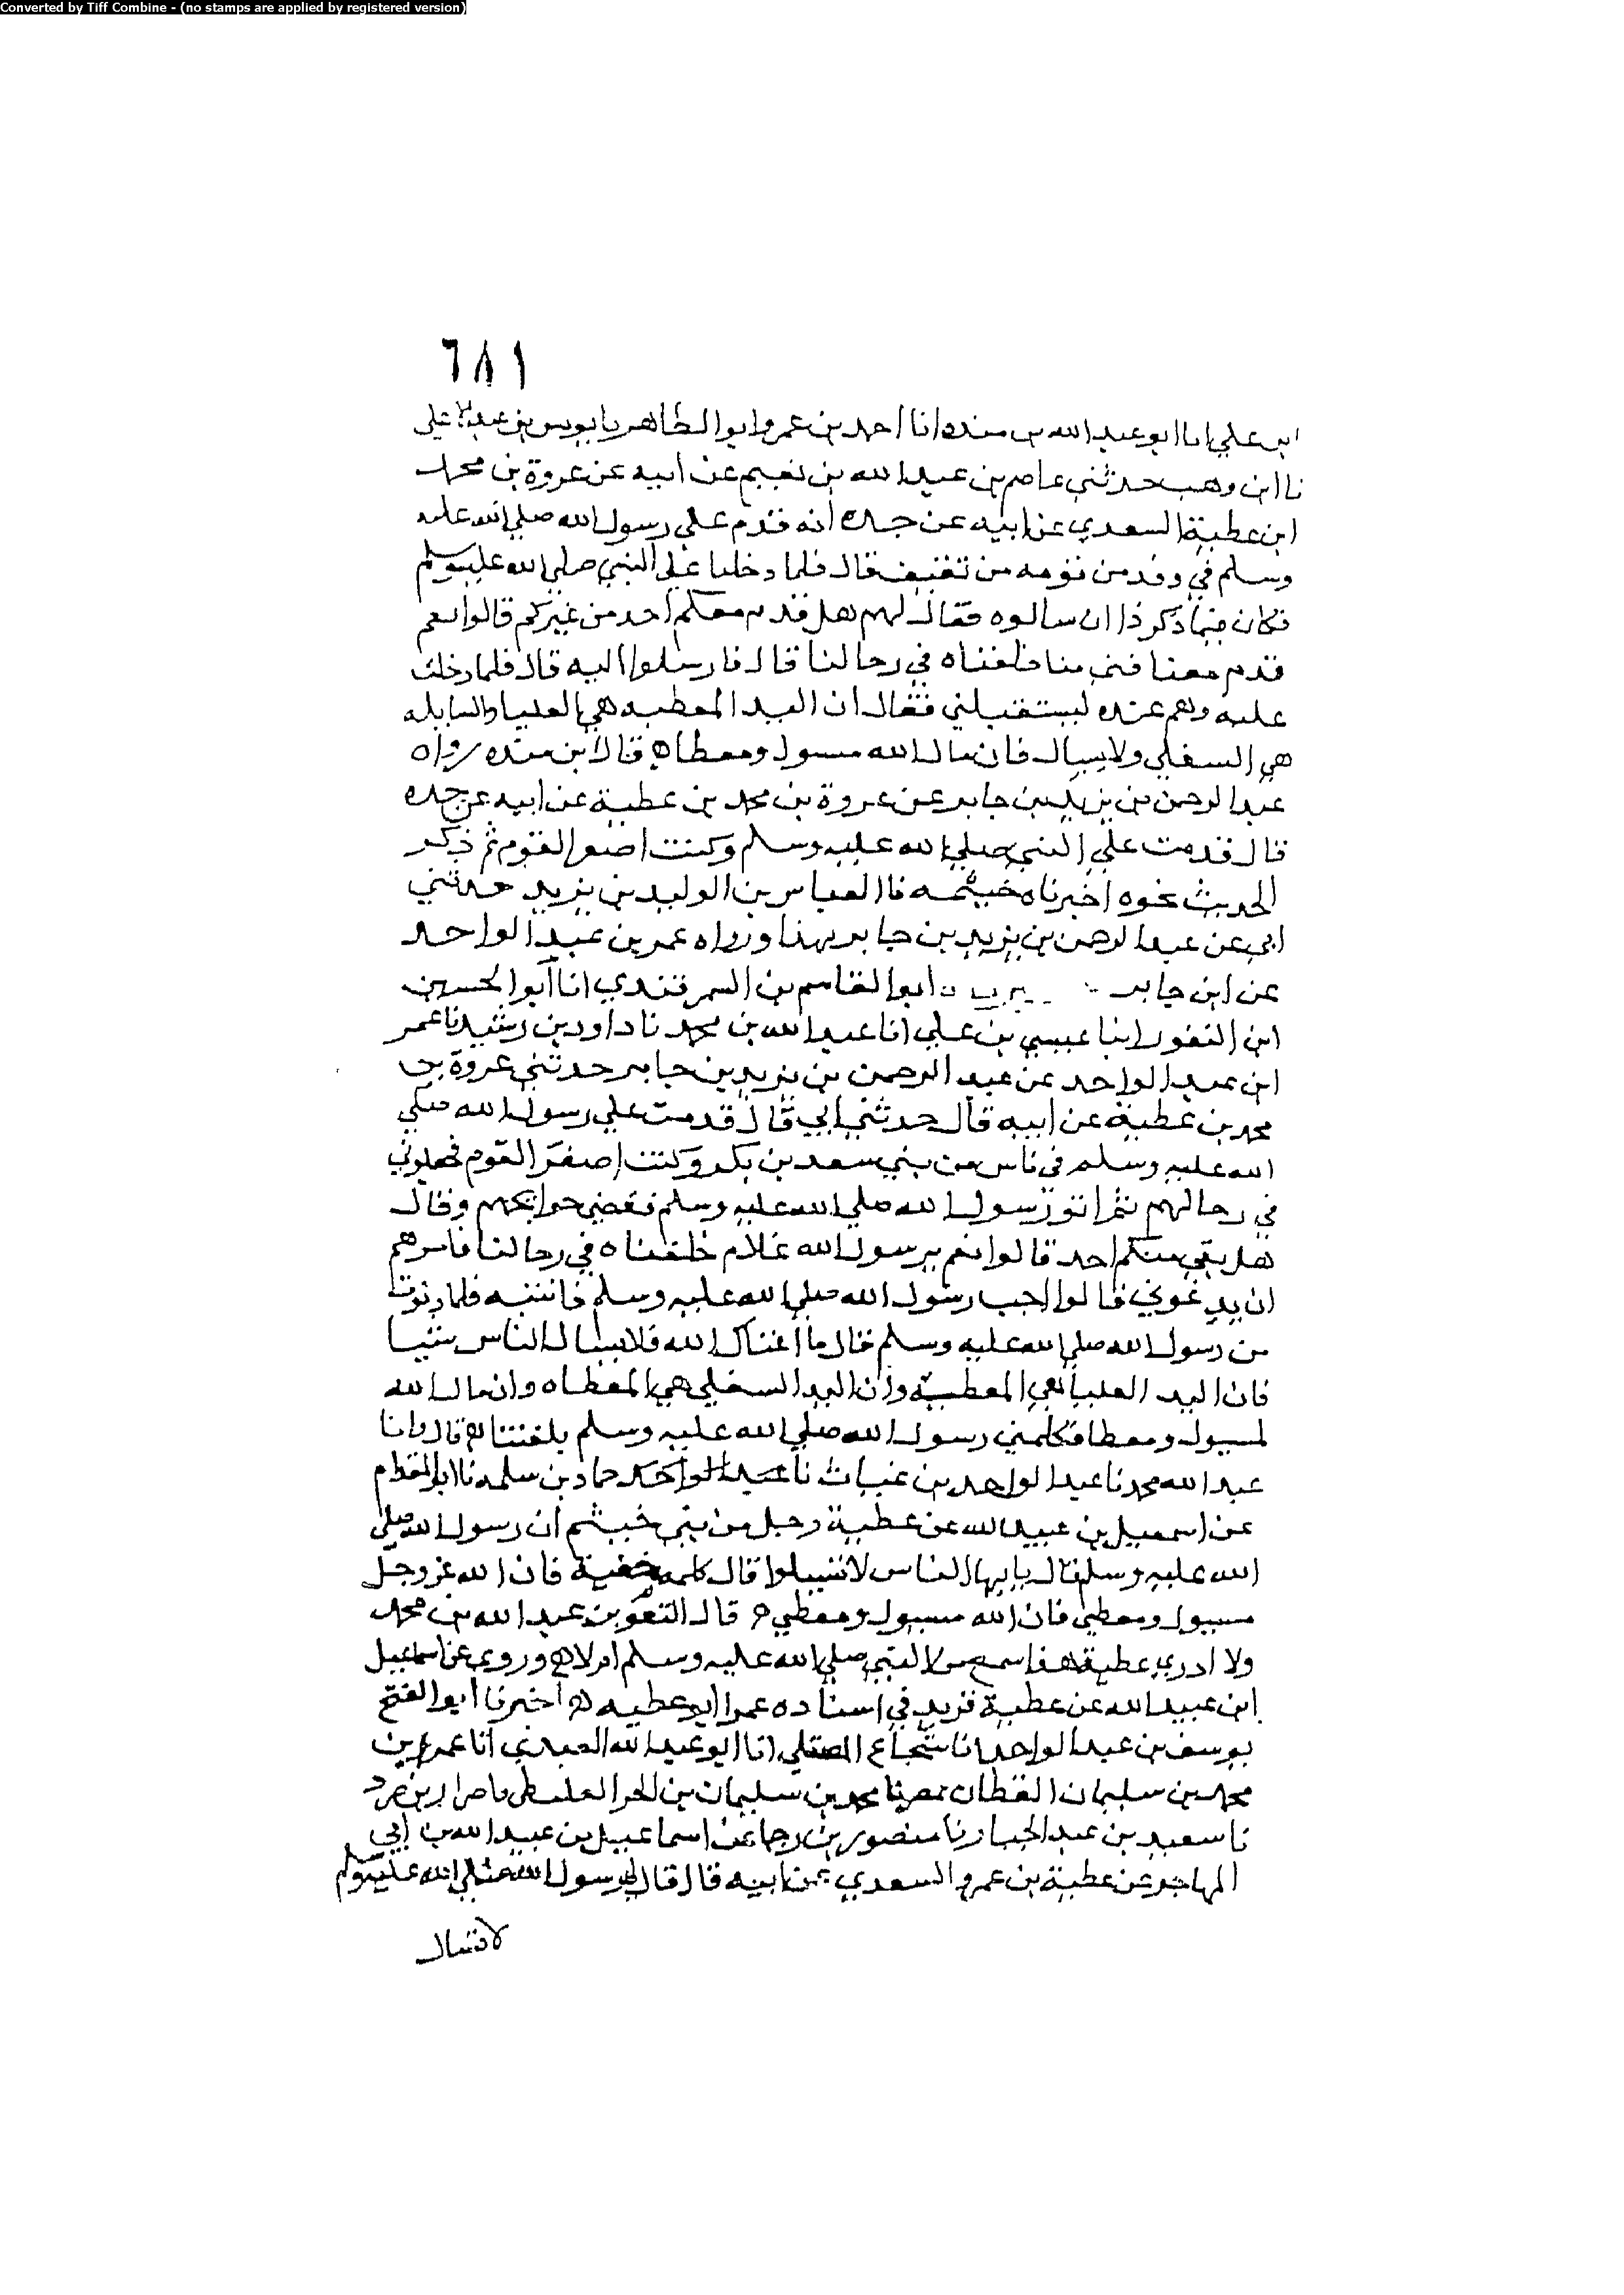 Converted by Tiff Combine - (no stamps are applied by registered version)
٦٨١
ابن علي انا ابو عبد الله بن منده انا احمد بن عمرو ابو الطاهر نا يونس بن عبد الاعلى
نا ابن وهب حدثني عاصم بن عبد الله بن نعيم عن أبيه عن عروة بن محمد
ابن عطية السعدي عن ابيه عن جده انه قدم علي رسول الله صلي الله عليه
وسلم في وفد من قومه من ثقيف قال فلما دخلنا علي النبي صلي الله عليه وسلم
فكان فيما ذكر ذا ان سالوه فقال لهم هل قدم معكم احد من غيركم قالوا نعم
قدم معنا فتى منا خلفناه في رحالنا قال فارسلوا اليه قال فلما دخلت
عليه وهم عنده ليستقبلني فقال ان اليد المعطيه هي العليا والسايله
هي السفلي ولا يسال فان مال الله مسول ومعطاه قال ابن منده رواه
عبد الرحمن بن يزيد بن جابر عن عروة بن محمد بن عطية عن ابيه عن جده
قال قدمت علي النبي صلي الله عليه وسلم وكنت اصغر القوم ثم ذكر
الحديث نحوه اخبرناه خيثمه نا العباس بن الوليد بن يزيد حدثني
ابي عن عبد الرحمن بن يزيد بن جابر بهذا ورواه عمر بن عبد الواحد
عن ابن جابر ابو القاسم بن السمرقندي انا أبو الحسين
ابن النقور انبا عيسي بن علي انا عبد الله بن محمد نا داود بن رشيد نا عمر
ابن عبد الواحد عن عبد الرحمن بن يزيد بن جابر حدثني عروة بن
محمد بن عطية عن ابيه قال حدثني ابي قال قدمت علي رسول الله صلي
الله عليه وسلم في ناس من بني سعد بن بكر وكنت اصغر القوم فخلفوني
في رحالهم ثم اتو رسول الله صلي الله عليه وسلم فقضي حوايجهم وقال
هل بقي منكم احد قالوا نعم يرسول الله غلام خلفناه في رحالنا فامرهم
ان يدعوني قالوا اجب رسول الله صلي الله عليه وسلم فاتيته فلما دنوت
من رسول الله صلي الله عليه وسلم قال ما أغناك الله فلا تسال الناس شيا
فان اليد العليا هي المعطية وان اليد السفلي هي المعطاه وان مال الله
لمسول ومعطا فكلمني رسول الله صلي الله عليه وسلم بلغتنا قال وانا
عبد الله محمد نا عبد الواحد بن غياث نا عبد الواحد حماد بن سلمه نا ابو المقدام
عن اسمعيل بن عبيد الله عن عطية رجل من بني خيثم أن رسول الله صلي
الله عليه وسلم قال يا ايها الناس لا تسيلوا قال كلمه خفية فان الله عز وجل
مسول ومعطي فان الله مسول ومعطي قال البغوي بن عبد الله بن محمد
ولا ادري عطية هذا سمع من النبي صلي الله عليه وسلم ام لا وروي عن اسماعيل
ابن عبيد الله عن عطية فزيد في اسناده عمرا ابو عطيه اخبرنا أبو الفتح
يوسف بن عبد الواحد انا شجاع المصقلي انا ابو عبد الله العبدي انا عمر بن
محمد بن سليمان القطان بمصر نا محمد بن سليمان بن ضرار بن صرد
نا سعيد بن عبد الجبار نا منصور بن رجا عن اسماعيل بن عبيد الله بن ابي
المهاجر عن عطية بن عمرو السعدي عن ابيه قال قال لي رسول الله صلي الله عليه وسلم
لا تسال